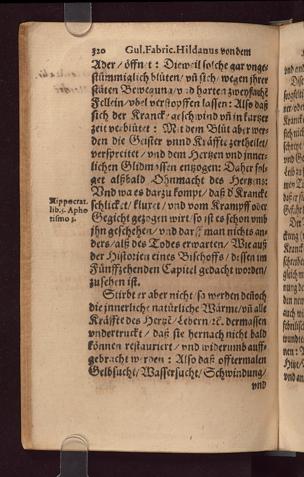 320 Gul. Fabric. Hildanus von dem
Ader / öffnet : Dieweil solche gar vnge-
stümmiglich blüten / vñ sich / wegen jhrer
stäten Bewegung / vnd harten zweyfachẽ
Fellein / vbel verstopffen lassen : Also daß
sich der Kranck / geschwind vñ in kurtzer
zeit verblütet : Mit dem Blüt aber wer-
den die Geister vnnd Kräffte zertheilet /
verspreitet / vnd dem Hertzen vnd inner-
lichen Glidmassen entzogen : Daher fol-
get alßbald Ohnmacht des Hertzens :
Vnd wa es darzu kompt / daß d Kranck
Hippocrat.
lib. 5. Apho
rismo 3.
schlicket / kluxet / vnd vom Krampff oder
Gegicht gezogen wirt / so ist es schon vmb
jhn geschehen / vnd darff man nichts an-
ders / als des Todes erwarten / Wie auß
der Historien eines Bischoffs / dessen im
Fünffzehenden Capitel gedacht worden /
zusehen ist.
Stirbt er aber nicht / so werden deñoch
die jnnerliche natürliche Wärme / vñ alle
Kräffte des Hertzẽ / Lebern / ꝛc. dermassen
vndertruckt / daß sie hernach nicht bald
können restauriert / vnd widerumb auff-
gebracht werden : Also daß offtermalen
Gelbsucht / Wassersucht / Schwindung /
vnd